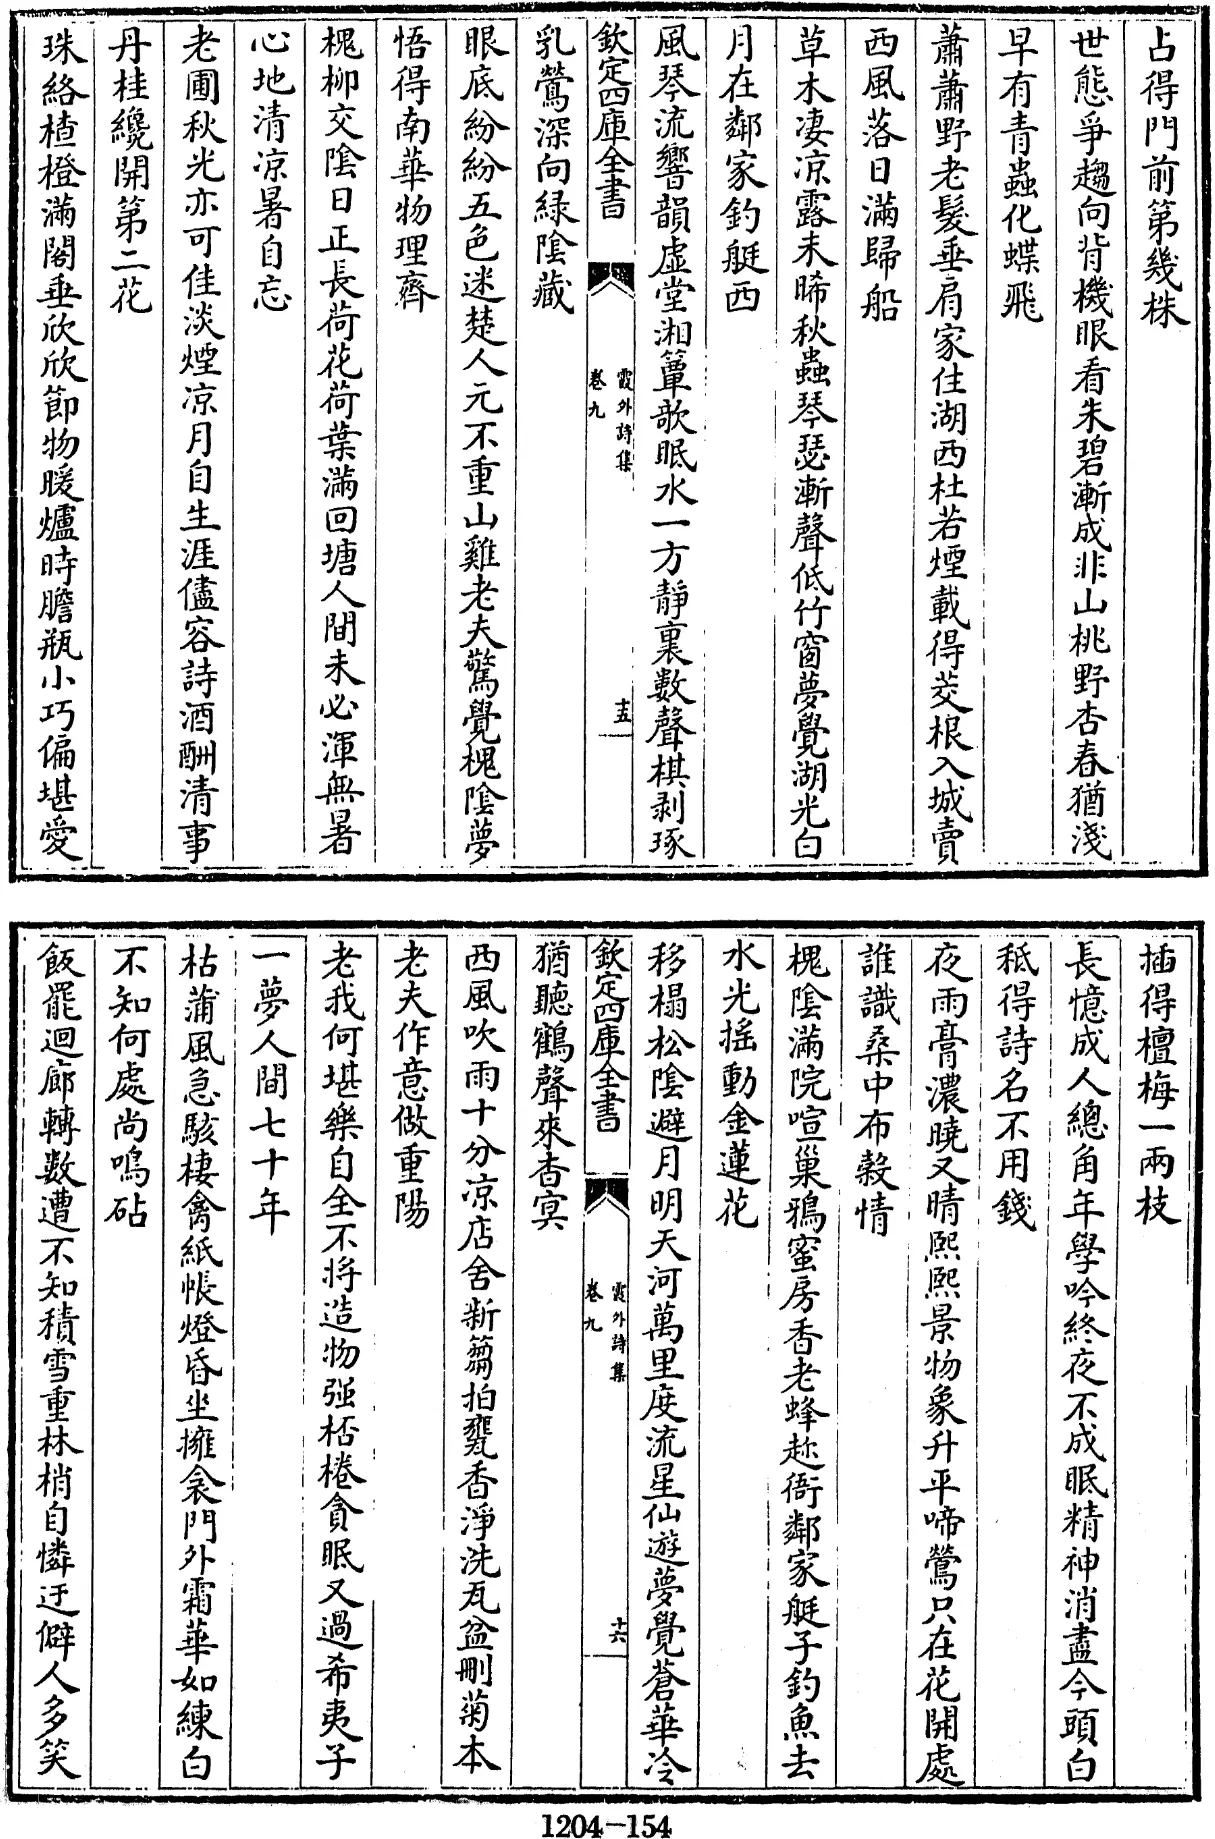 占得門前第幾株
世態爭趨向背機眼看朱碧漸成非山桃野杏春猶淺
早有青蟲化蝶飛
蕭蕭野老髮垂肩家住湖西杜若煙載得茭根入城賣
西風落日滿歸船
草木凄凉露未晞秋蟲琴瑟漸聲低竹窗夢覺湖光白
月在鄰家釣艇西
風琴流響韻虛堂湘簟歌眠水一方靜裏數聲棋剥琢
欽定四庫全書
霞外詩集
卷九
十五
乳鶯深向緑陰藏
眼底紛紛五色迷楚人元不重山雞老夫驚覺槐陰夢
悟得南華物理齊
槐柳交陰日正長荷花荷葉滿回塘人間未必渾無暑
心地清凉暑自忘
老圃秋光亦可佳淡煙凉月自生涯儘容詩酒酬清事
丹桂纔開第二花
珠絡楂橙滿閣垂欣欣節物暖爐時膽瓶小巧偏堪愛
插得檀梅一兩枝
長憶成人總角年學吟終夜不成眠精神消盡今頭白
秪得詩名不用錢
夜雨膏濃曉又晴熙熙景物象升平啼鶯只在花開處
誰識桑中布穀情
槐陰滿院喧巢鴉蜜房香老蜂趂衙鄰家艇子釣魚去
水光摇動金蓮花
移榻松陰避月明天河萬里度流星仙遊夢覺蒼華冷
欽定四庫全書
霞外詩集
卷九
十六
猶聽鶴聲來杳冥
西風吹雨十分凉店舍新篘拍甕香淨洗瓦盆删菊本
老夫作意做重陽
老我何堪樂自全不將造物强桮棬貪眠又過希夷子
一夢人間七十年
枯蒲風急駭棲禽紙帳燈昏坐擁衾門外霜華如練白
不知何處尚鳴砧
飯罷迴廊轉數遭不知積雪重林梢自憐迂僻人多笑
1204-154